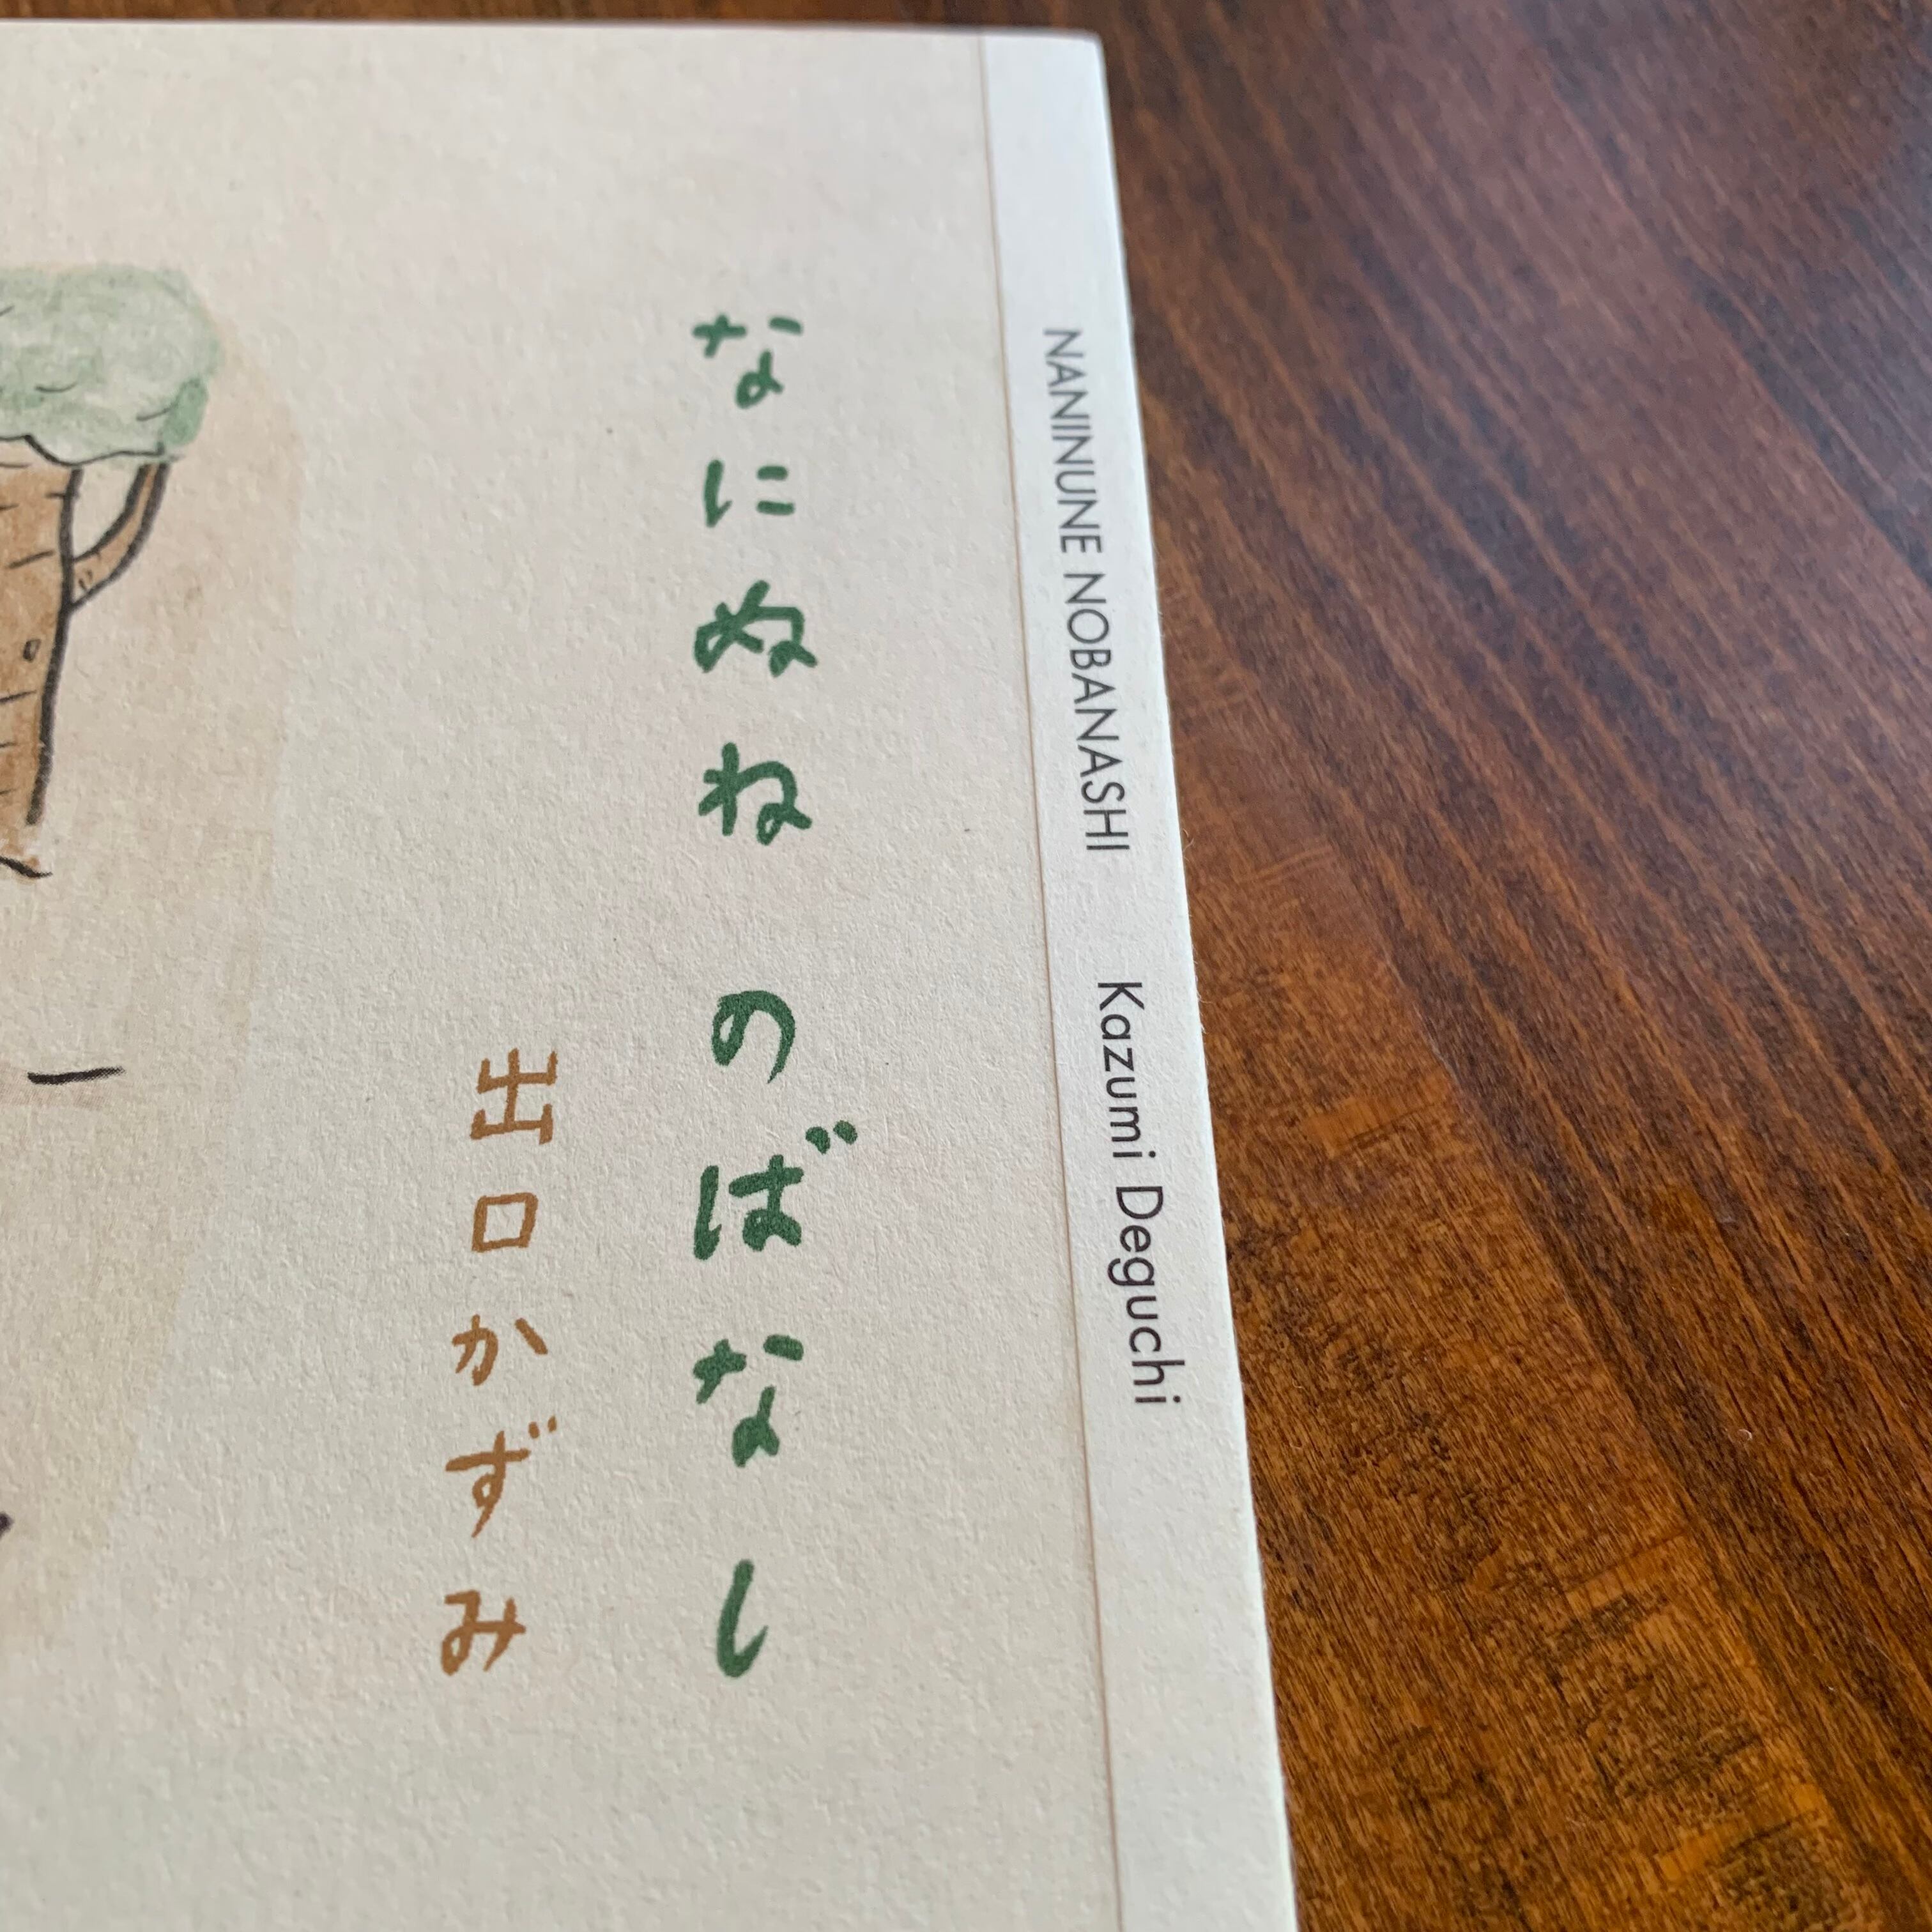 NANINUNE NOBANASHI Kazumi Deguchi
なにぬね のばなし
出口かずみ